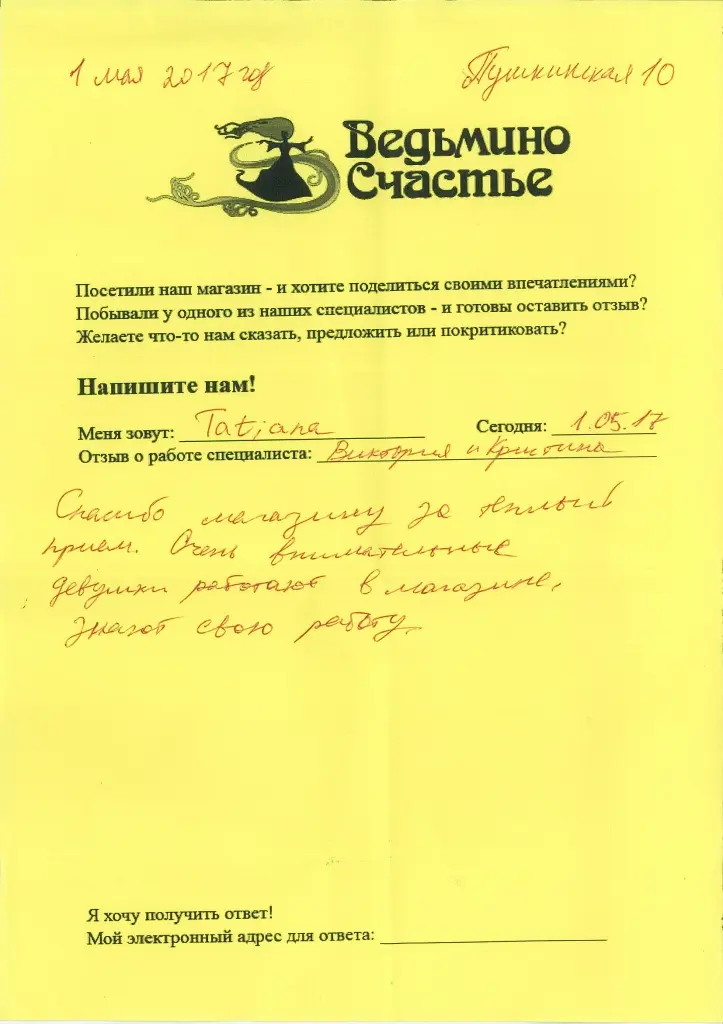 1 мая 2017 год Пушкинская 10
Ведьмино
Счастье
Посетили наш магазин - и хотите поделиться своими впечатлениями?
Побывали у одного из наших специалистов - и готовы оставить отзыв?
Желаете что-то нам сказать, предложить или покритиковать?
Напишите нам!
Меня зовут: Tatjana Сегодня: 1.05.17
Отзыв о работе специалиста: Виктория и Кристина
Спасибо магазину за теплый
прием. Очень внимательные
девушки работают в магазине,
знают свою работу.
Я хочу получить ответ!
Мой электронный адрес для ответа: